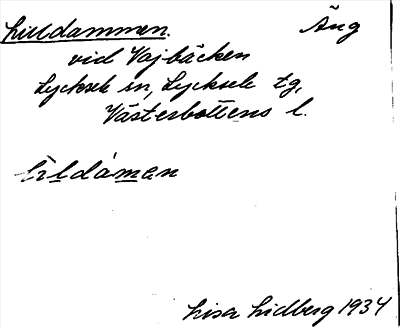 Lilldammen. Äng
vid Vajbäcken
Lycksele sn, Lycksele tg,
Västerbottens l.
lìldáman
Lisa Lidberg 1934